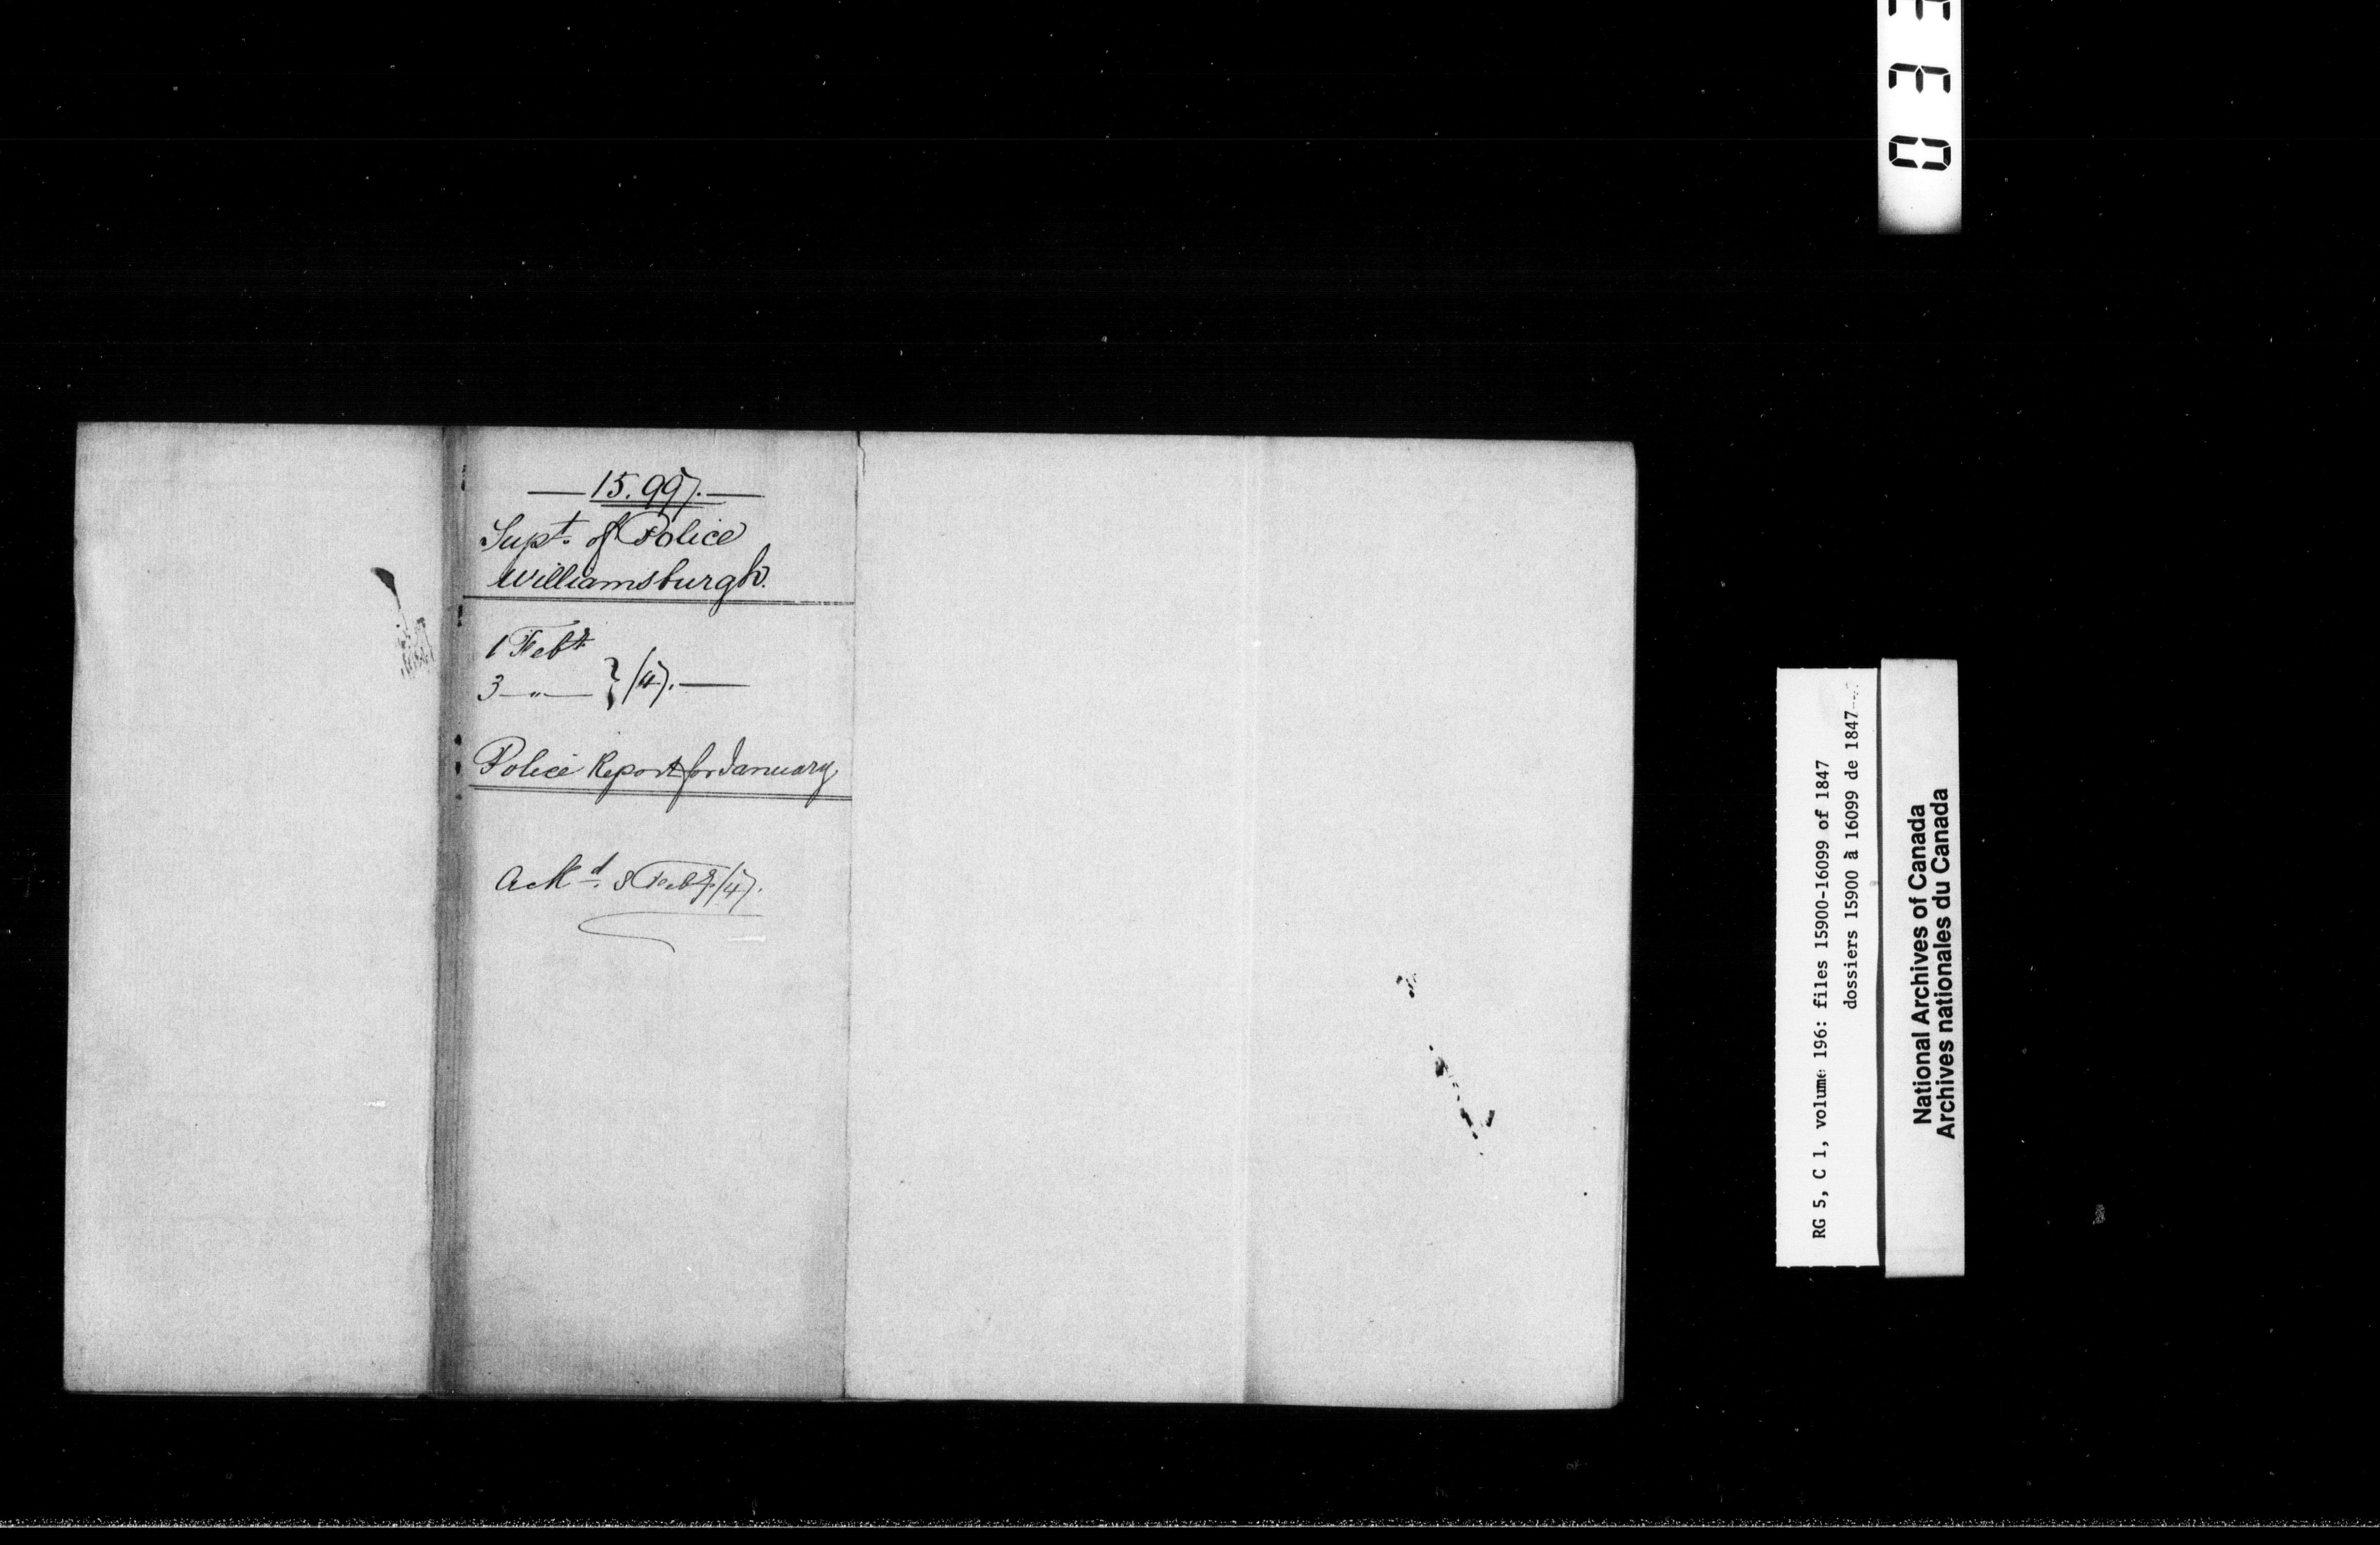 15.997.
Supt. of Police
Williamsburgh.
1 Feby
3 " } /47.
Police Report for January.
Ackd. 8 Feby/47.
RG 5, C 1, volume 196: files 15900-16099 of 1847
dossiers 15900 à 16099 de 1847
National Archives of Canada
Archives nationales du Canada